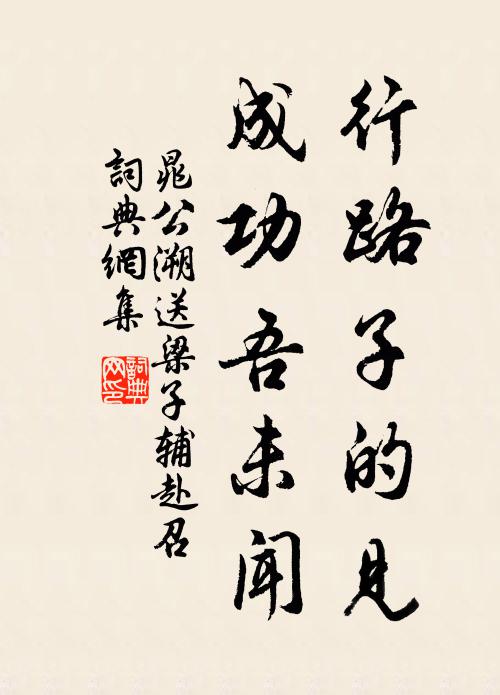 行路子的见
成功吾未闻
晁公溯送梁子辅赴召
詞典網集
詞典网印